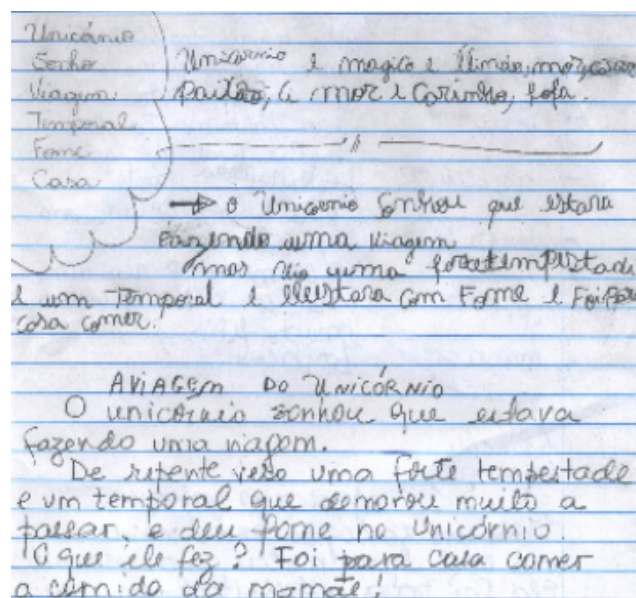 Unicórnio
Senho
Viagem
Temporal
Fome
Casa
Unicornio é magico e
paixão, a mor e carinho, fofa.
→ o Unicornio sonhou que estara
fazendo uma viagem
mas veio yuma fortetempistade
e um Temporal e eleestara com Fome e Foi para
casa comer.
AVIAGEM DO UNICÓRNIO
O unicórnio sonhou que estava
fazendo uma viagem.
De repente veio uma forte tempestade
e um temporal que demorou muito a
passar, e deu fome no Unicórnio.
O que ele fez? Foi para casa comer
a comida da mamãe!